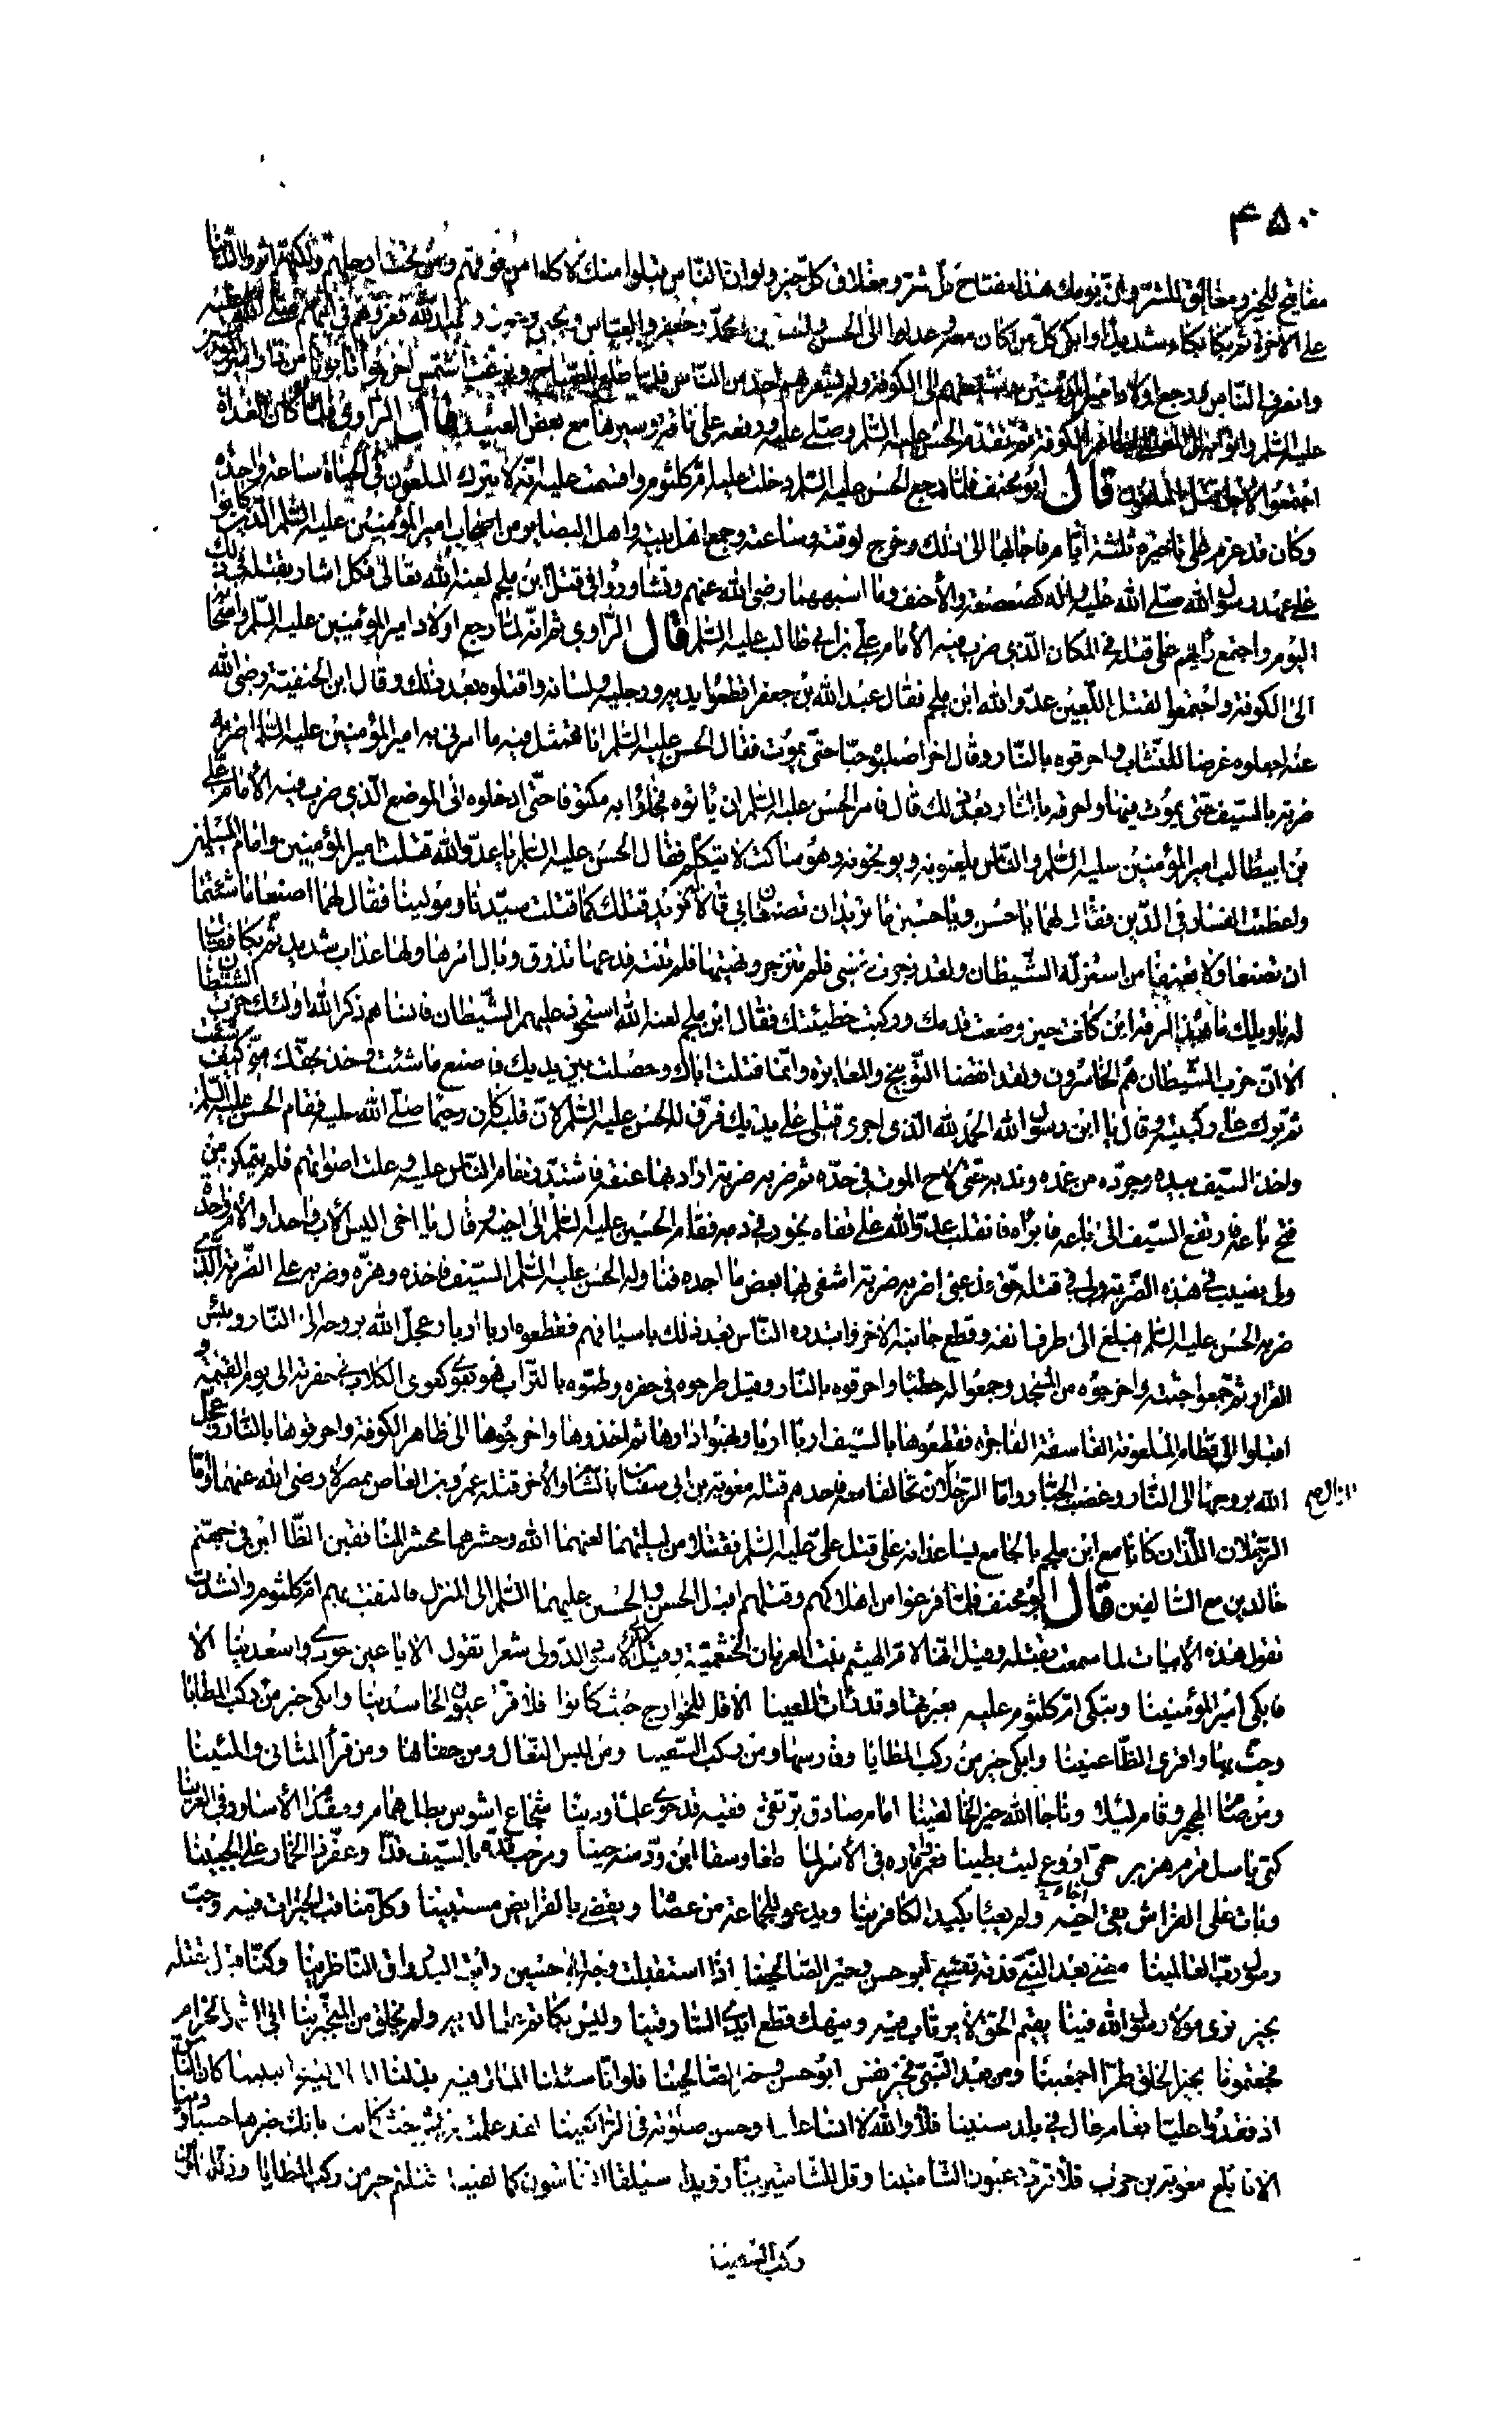 ۴۵۰
مفاتيح للخير ومغاليق للشر وان يومك هذا مفتاح كل شر ومغلاق كل خير ولو ان الناس قبلوا منك لاكلوا من فوقهم ومن تحت ارجلهم ولكنهم اثروا الدنيا
على الاخرة ثم بكا بكاء شديدا وابكى كل من كان معه وعدلوا الى الحسن والحسين ومحمد وجعفر والعباس ويحيى وعون وعبد الله فعزوهم في ابيهم صلى الله عليه
وانصرف الناس ورجع اولاد امير المؤمنين وشيعتهم الى الكوفة ولم يشعر بهم احد من الناس فلما طلع الصباح وبزغت الشمس اخرجوا تابوتا من دار امير المؤمنين
عليه السلم واتوا به الى المصلى بظاهر الكوفة ثم تقدم الحسن عليه السلم وصلى عليه ورفعه على ناقة وسيرها مع بعض العبيد قال الراوي فلما كان الغداة
اجتمعوا لاجل قتل الملعون قال ابو مخنف فلما رجع الحسن عليه السلم دخلت عليه ام كلثوم واقسمت عليه انه لا يترك الملعون في الحياة ساعة واحدة
وكان قد عزم على تاخيره ثلثة ايام فاجابها الى ذلك وخرج لوقته وساعته وجمع اهل بيته واهل البصاير من اصحاب امير المؤمنين عليه السلم الذين كانوا
على عهد رسول الله صلى الله عليه واله كصعصعة والاحنف وما اشبههما رضي الله عنهم وتشاوروا في قتل ابن ملجم لعنه الله تعالى فكل اشار بقتله في ذلك
اليوم واجتمع رايهم على قتله في المكان الذي ضرب فيه الامام علي بن ابي طالب عليه السلم قال الراوي ثم انه لما رجع اولاد امير المؤمنين عليه السلم واصحابه
الى الكوفة واجتمعوا لقتل اللعين عدو الله ابن ملجم فقال عبد الله بن جعفر اقطعوا يديه ورجليه ولسانه واقتلوه بعد ذلك وقال ابن الحنفية رضي الله
عنه اجعلوه غرضا للنشاب واحرقوه بالنار وقال اخر اصلبوه حيا حتى يموت فقال الحسن عليه السلم انا ممتثل فيه ما امرني به امير المؤمنين عليه السلم اضربه
ضربة بالسيف حتى يموت فيها واحرقه بالنار بعد ذلك قال فامر الحسن عليه السلم ان ياتوه به فجاؤا به مكتوفا حتى ادخلوه الى الموضع الذي ضرب فيه الامام علي
بن ابيطالب امير المؤمنين عليه السلم والناس يلعنونه ويوبخونه وهو ساكت لا يتكلم فقال الحسن عليه السلم يا عدو الله قتلت امير المؤمنين وامام المسلمين
واعظمت الفساد في الدين فقال لهما يا حسن ويا حسين ما تريدان تصنعان بي قالا نريد قتلك كما قتلت سيدنا ومولينا فقال لهما اصنعا ما شئتما
ان تصنعا ولا تعنفا من استزله الشيطان ولقد زجرت نفسي فلم تنزجر ونهيتها فلم تنته فدعها تذوق وبال امرها ولها عذاب شديد ثم بكا فقال
له يا ويلك ما هذه الرقة اين كانت حين وضعت قدمك وركبت خطيئتك فقال ابن ملجم لعنه الله استحوذ عليهم الشيطان فانساهم ذكر الله اولئك حزب الشيطان
الا ان حزب الشيطان هم الخاسرون ولقد انقضا التوبيخ والمعايرة وانما قتلت اباك وحصلت بين يديك فاصنع ما شئت وخذ بحقك مني كيف شئت
ثم برك على ركبتيه وقال يا ابن رسول الله الحمد لله الذي اجرى قتلي على يديك فرق له الحسن عليه السلم لان قلبه كان رحيما صلى الله عليه فقام الحسن عليه السلم
واخذ السيف بيده وجرده من غمده وندبه حتى لاح الموت في حده ثم ضربه ضربة اراد بها عنقه فاشتد زحام الناس عليه وعلت اصواتهم فلم يتمكن من
فتح باعه فارتفع السيف الى باعه فابراه فانقلب عدو الله على قفاه يخور في دمه فقام الحسين عليه السلم الى اخيه وقال يا اخي اليس الاب واحدا والام واحدة
ولي نصيب في هذه الضربة ولي في قتله حق فدعني اضربه ضربة اشفي بها بعض ما اجده فناوله الحسن عليه السلم السيف فاخذه وهزه وضربه على الضربة التي
ضربه الحسن عليه السلم فبلغ الى طرف انفه وقطع جانبه الاخر وابتدره الناس بعد ذلك باسيافهم فقطعوه اربا اربا وعجل الله بروحه الى النار وبئس
القرار ثم جمعوا جثته واخرجوه من المسجد وجمعوا له حطبا واحرقوه بالنار وقيل طرحوه في حفرة وطموه بالتراب فهو يعوى كعوى الكلاب في حفرته الى يوم القيمة و
اقبلوا الى قطام الملعونة الفاسقة الفاجرة فقطعوها بالسيف اربا اربا ونهبوا دارها ثم اخذوها واخرجوها الى ظاهر الكوفة واحرقوها بالنار وعجل
الله بروحها الى النار وغضب الجبار واما الرجلان تحالفا معه فاحدهم قتله معوية بن ابي سفيان بالشام والاخر قتله عمرو بن العاص بمصر لا رضي الله عنهما واما
الرجلان اللذان كانا مع ابن ملجم بالجامع يساعدانه على قتل علي عليه السلم فقتلا من ليلتهما لعنهما الله وحشرهما محشر المنافقين الظالمين في جهنم
خالدين مع السالفين قال ابو مخنف فلما فرغوا من اهلاكهم وقتلهم اقبل الحسن والحسين عليهما السلم الى المنزل فالتفت بهم ام كلثوم وانشدت
تقول هذه الابيات لما سمعت بقتله وقيل انها لام الهيثم بنت العريان الخثعمية وقيل للاسود الدولى شعرا تقول الا يا عين جودي واسعدينا الا
فابكى امير المؤمنينا وتبكى ام كلثوم عليه بعبرتها وقد رات اليقينا الا قل للخوارج حيث كانوا فلا قرت عيون الحاسدينا وابكى خير من ركب المطايا
وحث بها واقرى الظاعنينا وابكى خير من ركب المطايا وفارسها ومن ركب السفينا ومن لبس النعال ومن حفاها ومن قرأ المثاني والمئينا
ومن صام الهجير وقام ليلا وناجا الله خير الخالقينا امام صادق بر تقى فقيه قد حوى علما ودينا شجاع اشوس بطل همام ومقدام الاساود في العرينا
كمى باسل قرم هزبر حمى اروع ليث بطينا فعمرو قاده في الاسر لما طغا وسقا ابن ود منه حينا ومرحب قده بالسيف قدا وعفر ذا الخمار على الجبينا
وبات على الفراش يقى اخيه ولم يعبا بكيد الكافرينا ويدعو للجماعة من عصاه ويقضى بالفرايض مستبينا وكل مناقب الخيرات فيه وحب
رسول رب العالمينا مضى بعد النبى فدته نفسى ابو حسن وخير الصالحينا اذا استقبلت وجه ابى حسين رايت البدر راق الناظرينا وكنا قبل مقتله
بخير نرى مولا رسول الله فينا يقيم الحق لا يرتاب فيه وينهك قطع ايدى السارقينا وليس بكاتم علما لديه ولم يخلق من المتجبرينا افى الشهر الحرام
فجعتمونا بخير الخلق طرا اجمعينا ومن بعد النبى فخير نفس ابو حسن وخير الصالحينا فلو انا سئلنا المال فيه بذلنا المال كان الناس
اذ فقدوا عليا نعام جال في بلد سنينا فلا والله لا انسا عليا وحسن صلوته في الراكعينا لقد علمت قريش حيث كانت بانك خيرها حسبا ودينا
الا فابلغ معوية بن حرب فلا قرت عيون الشامتينا وقل للشامتين بنا رويدا سيلقا الشامتون كما لقينا قتلتم خير من ركب المطايا
ركب السفينا